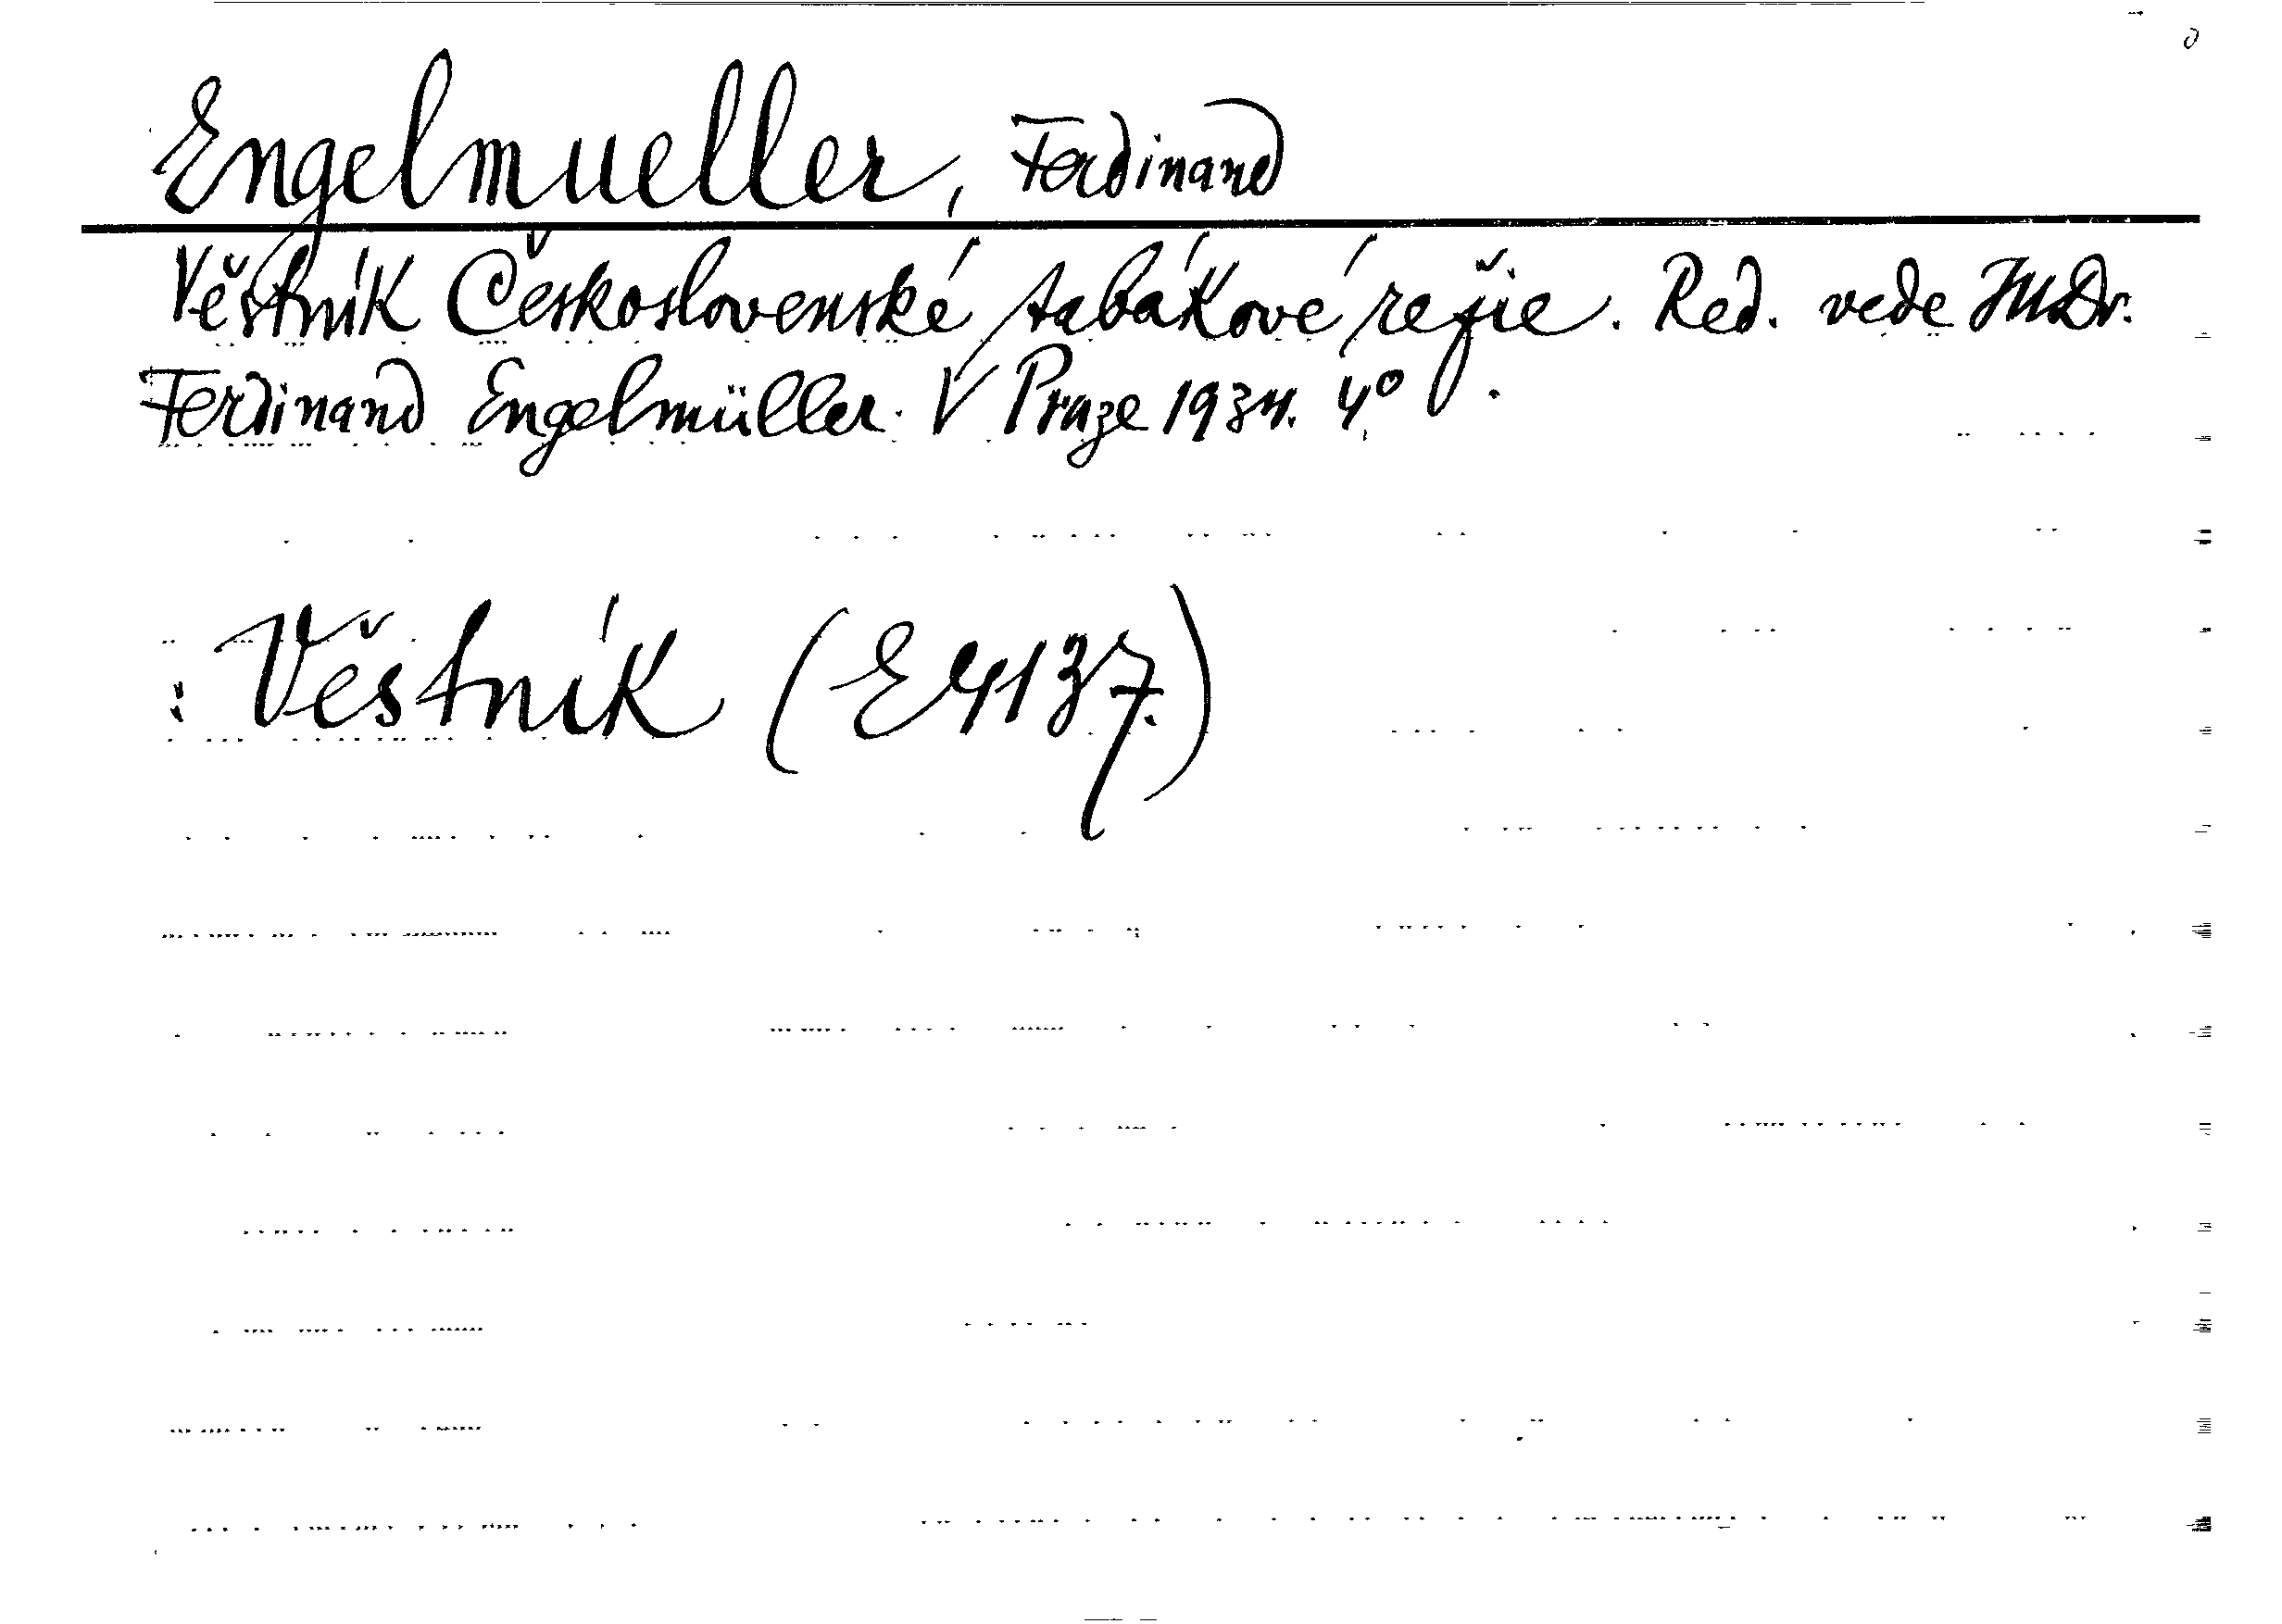 Engelmueller, Ferdinand
Věstník Československé tabákové režie. Red. vede JUDr.
Ferdinand Engelmüller. V Praze 1934. 4°.
: Věstník (E 4137.)